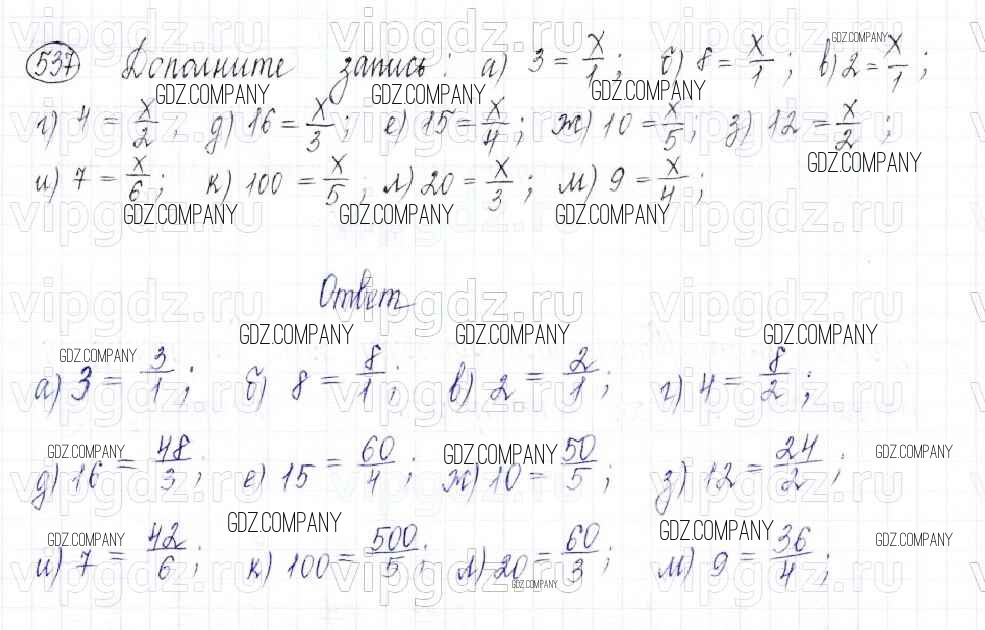 537 Дополните запись: а) 3 = x/1; б) 8 = x/1; в) 2 = x/1;
г) 4 = x/2; д) 16 = x/3; е) 15 = x/4; ж) 10 = x/5; з) 12 = x/2;
и) 7 = x/6; к) 100 = x/5; л) 20 = x/3; м) 9 = x/4;
Ответ
а) 3 = 3/1; б) 8 = 8/1; в) 2 = 2/1; г) 4 = 8/2;
д) 16 = 48/3; е) 15 = 60/4; ж) 10 = 50/5; з) 12 = 24/2;
и) 7 = 42/6; к) 100 = 500/5; л) 20 = 60/3; м) 9 = 36/4;